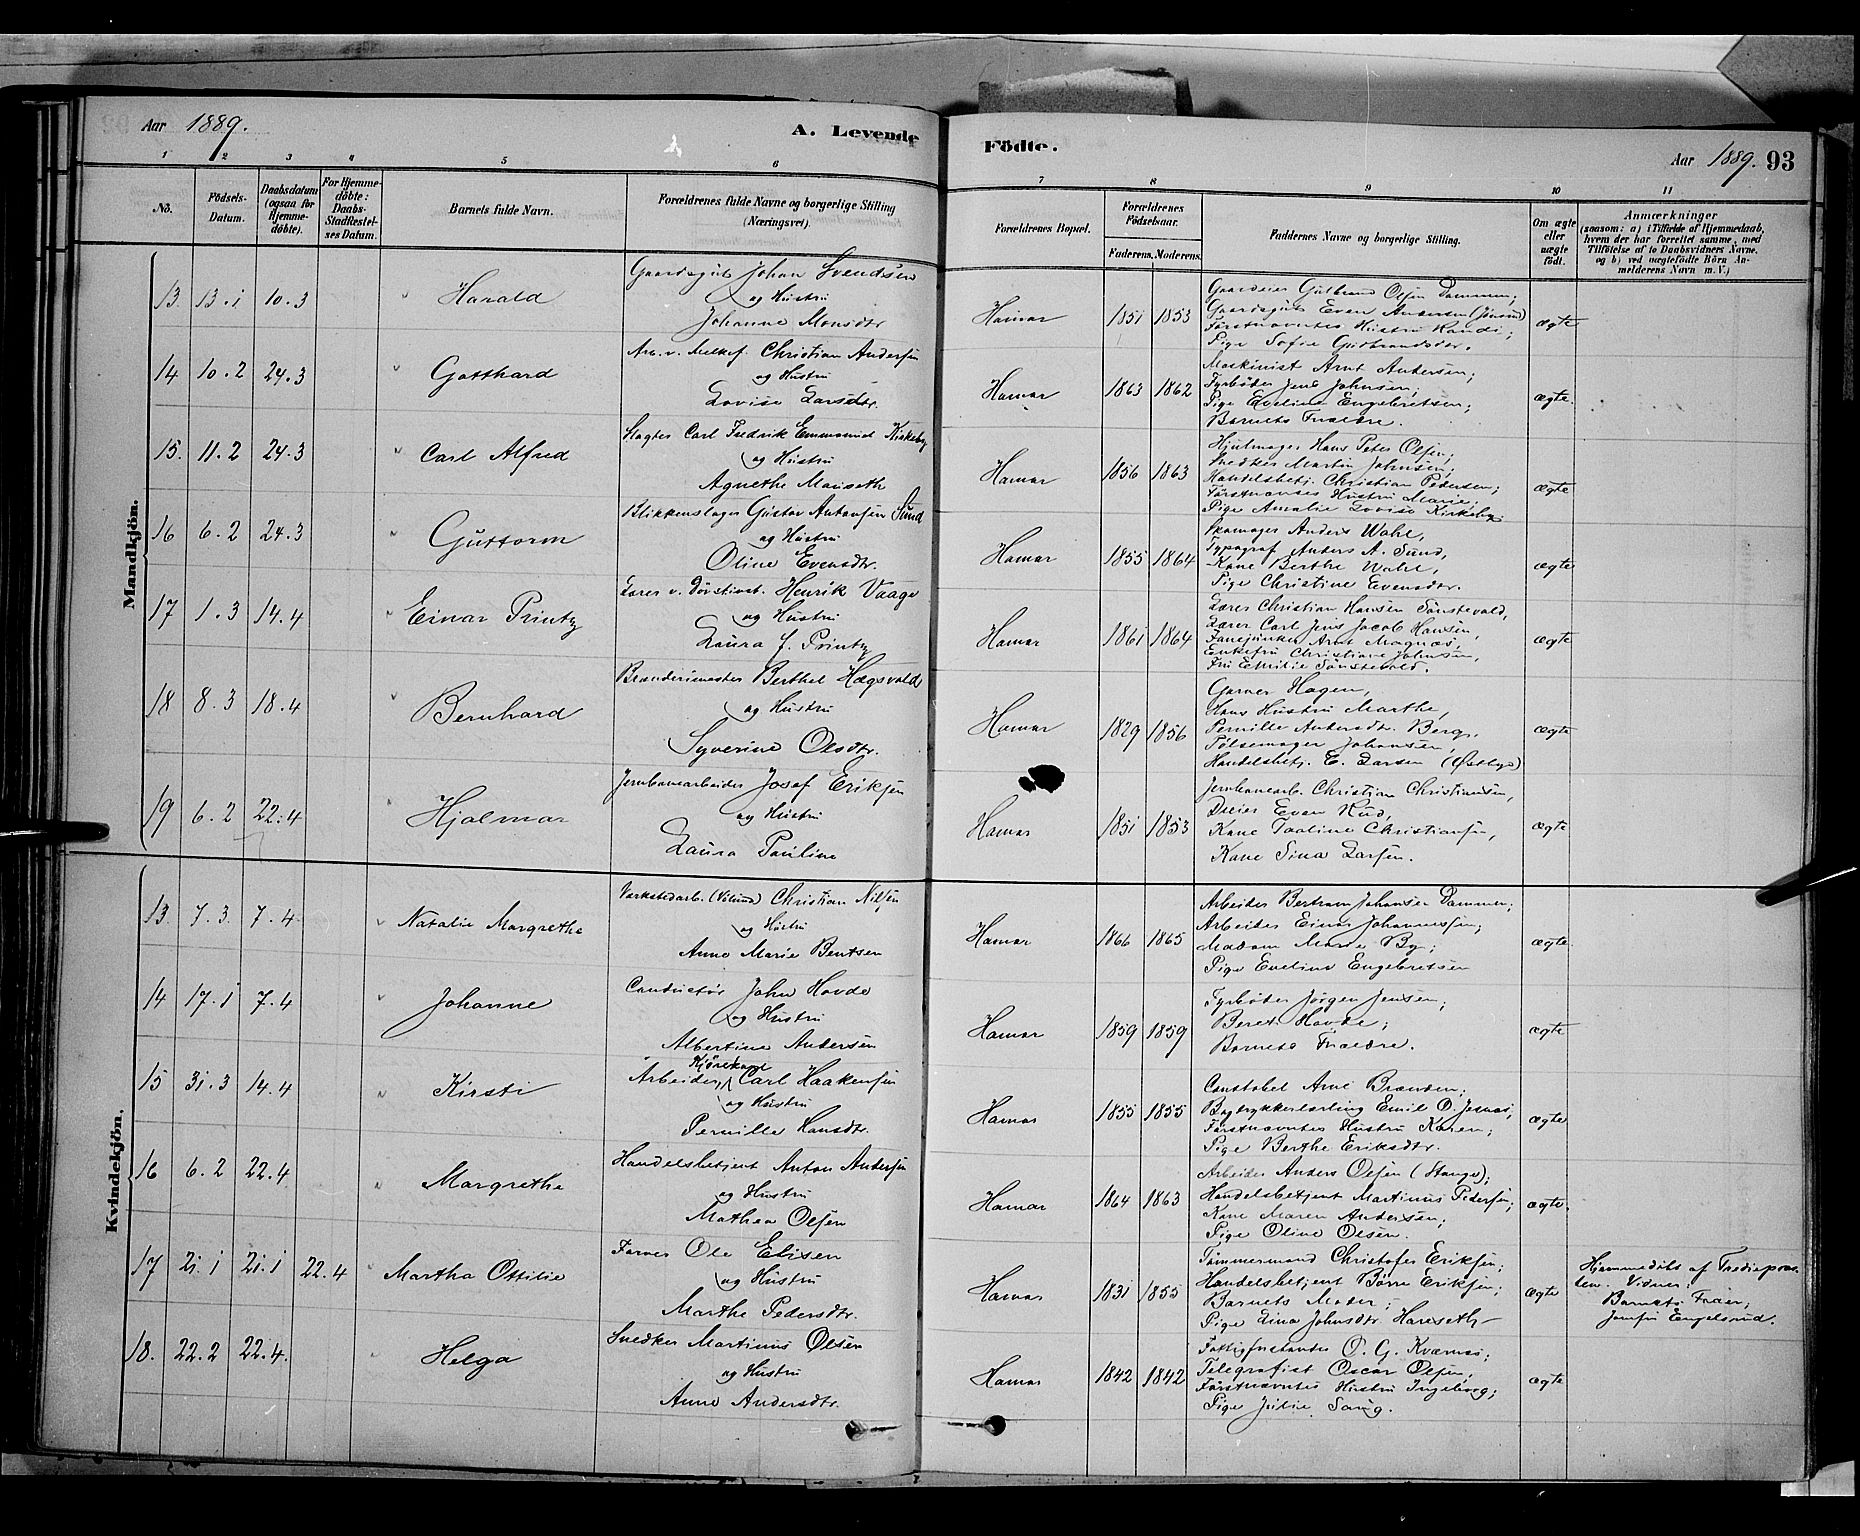 Aar 1889.
A. Levende
Födte.
Aar 1889. 93
1 2 3 4 5 6 7 8 9 10 11
No.
Födsels-Datum.
Daabsdatum (ogsaa for Hjemme-döbte).
For Hjemme-döbte: Daabs-Stadfæstel-ses Datum.
Barnets fulde Navn.
Forældrenes fulde Navne og borgerlige Stilling (Næringsvei).
Forældrenes Bopæl.
Forældrenes Födselsaar.
Faderens. Moderens.
Faddernes Navne og borgerlige Stilling.
Om ægte eller uægte födt.
Anmærkninger
(saasom: a) i Tilfælde af Hjemmedaab, hvem der har forrettet samme, med Tilföielse af to Daabsvidners Navne, og b) ved uægtefödte Börn An-melderens Navn m. V.)
Mandkjön.
13 13.1 10.3 " Harald
Gaardsgut Johan Svendsen
og Hustru
Johanne Monsdtr
Hamar 1851 1853
Gaardeier Gulbrand Olsen Dammen;
Gaardsgut Even Andersen
Förstnævntes Hustru Randi;
Pige Sofie Gudbrandsdtr.
ægte
14 10.2 24.3 " Gotthard
Arb. v. Melkef. Christian Andersen
og Hustru
Lovise Larsdtr.
Hamar 1863 1862
Maskinist Arnt Andersen;
Fyrböder Jens Johnsen;
Pige Eveline Engebretsen;
Barnets Forældre.
ægte.
15. 11.2 24.3 " Carl Alfred
Slagter Carl Fredrik Emmanuel Kirkeby
og Hustru
Agnethe Mauseth
Hamar 1856 1863
Hjulmager Hans Peter Olsen;
Snedker Martin Johnsen;
Handelsbetj. Christian Pedersen;
Förstnævntes Hustru Marie;
Pige Amalie Lovise Kirkeby.
ægte
16 6.2 24.3 Guttorm
Blikkenslager Gustav Antonsen Sund
og Hustru
Oline Evensdtr.
Hamar 1855 1864
Skomager Anders Wahl,
Typograf Anders A. Sund,
Kone Berthe Wahl,
Pige Christine Evensdtr.
ægte
17 1.3 14.4 " Einar Printz
Lærer v. Døvstinst. Henrik Vaage
og Hustru
Laura f. Printz
Hamar 1861 1864
Lærer Christian Hansen Sönstevold,
Lærer Carl Jens Jacob Hansen,
Fanejunker Arnt Magnæs,
Enkefru Christiane Johnsen,
Fru Emilie Sönstevold.
ægte
18 8.3 18.4 " Bernhard
Brænderimester Berthel Hægsvold
og Hustru
Syverine Olsdtr.
Hamar 1829 1856
Garver Hagen,
Hans Hustru Marthe,
Pernille Andersdtr. Berg,
Pölsemager Johansen,
Handelsbetj. E. Larsen (Østbye)
ægte
19 6.2 22.4 " Hjalmar
Jernbanearbeider Josef Eriksen
og Hustru
Laura Pauline
Hamar 1851 1853
Jernbanearb. Christian Christiansen,
Dreier Even Rud,
Kone Pauline Christiansen,
Kone Sina Larsen.
ægte
Kvindekjön.
13. 7.3 7.4 " Natalie Margrethe
Værkstedarb. (Völund) Christian Nilsen
og Hustru
Anne Marie Bentsen
Hamar 1866 1865
Arbeider Bertram Johansen Dammen;
Arbeider Einar Johannessen;
Madam Marie By;
Pige Eveline Engebretsen
ægte
14 17.1 7.4 " Johanne
Conductör John Hovde
og Hustru
Albertine Andersen
Hamar 1859 1859
Fyrböder Jørgen Jensen;
Beret Hovde;
Barnets Forældre.
ægte
15 31.3 14.4 " Kirsti
Kjörekarl
Arbeider Carl Haakensen
og Hustru
Pernille Hansdtr.
Hamar 1855 1855
Constabel Arne Brænden;
Bogtrykkerlærling Emil O. Jesnæs;
Förstnævntes Hustru Karen;
Pige Berthe Eriksdtr.
ægte
16 6.2 22.4 " Margrethe
Handelsbetjent Anton Andersen
og Hustru
Mathea Olsen
Hamar 1864 1863
Arbeider Anders Olsen (Stange);
Handelsbetjent Martinus Pedersen;
Kone Maren Andersen;
Pige Oline Olsen.
ægte.
17 21.1 21.1 22.4 Martha Ottilie
Farver Ole Elisen
og Hustru
Marthe Pedersdtr.
Hamar 1831 1855
Tömmermand Christofer Eriksen;
Handelsbetjent Börre Eriksen;
Barnets Moder;
Pige Lina Johnsdtr Hareseth
ægte
Hjemmedöbt af Trediepræ-
sten. Vidner:
Barnets Fader;
Jomfru Engelsrud.
18. 22.2 22.4. " Helga
Snedker Martinus Olsen
og Hustru
Anne Andersdtr.
Hamar 1842 1842
Fattigforstander O. G. Kværnæs;
Telegrafist Oscar Olsen;
Förstnævntes Hustru Ingeborg;
Pige Julie Sang.
ægte